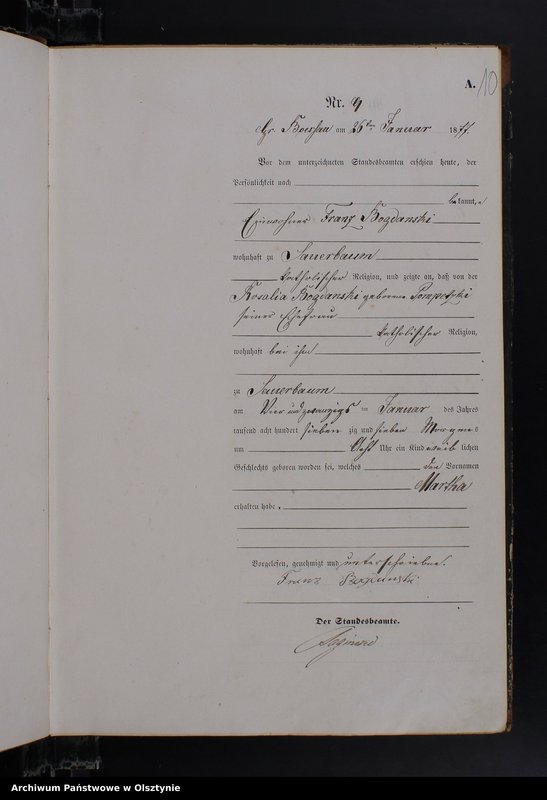 A. 10
Nr. 9
Gr. Boessau am 26ten Januar 1877.
Vor dem unterzeichneten Standesbeamten erschien heute, der
Persönlichkeit nach
bekannt,
Einwohner Franz Bogdanski
wohnhaft zu Sauerbaum
katholischer Religion, und zeigte an, daß von der
Rosalia Bogdanski geborene
seiner Ehefrau
katholischer Religion,
wohnhaft bei ihm
zu Sauerbaum
am Vier und zwanzigs ten Januar des Jahres
tausend acht hundert sieben zig und sieben Morgens
um Acht Uhr ein Kind weib lichen
Geschlechts geboren worden sei, welches den Vornamen
Martha
erhalten habe.
Vorgelesen, genehmigt und unterschrieben.
Franz
Der Standesbeamte.
Archiwum Państwowe w Olsztynie